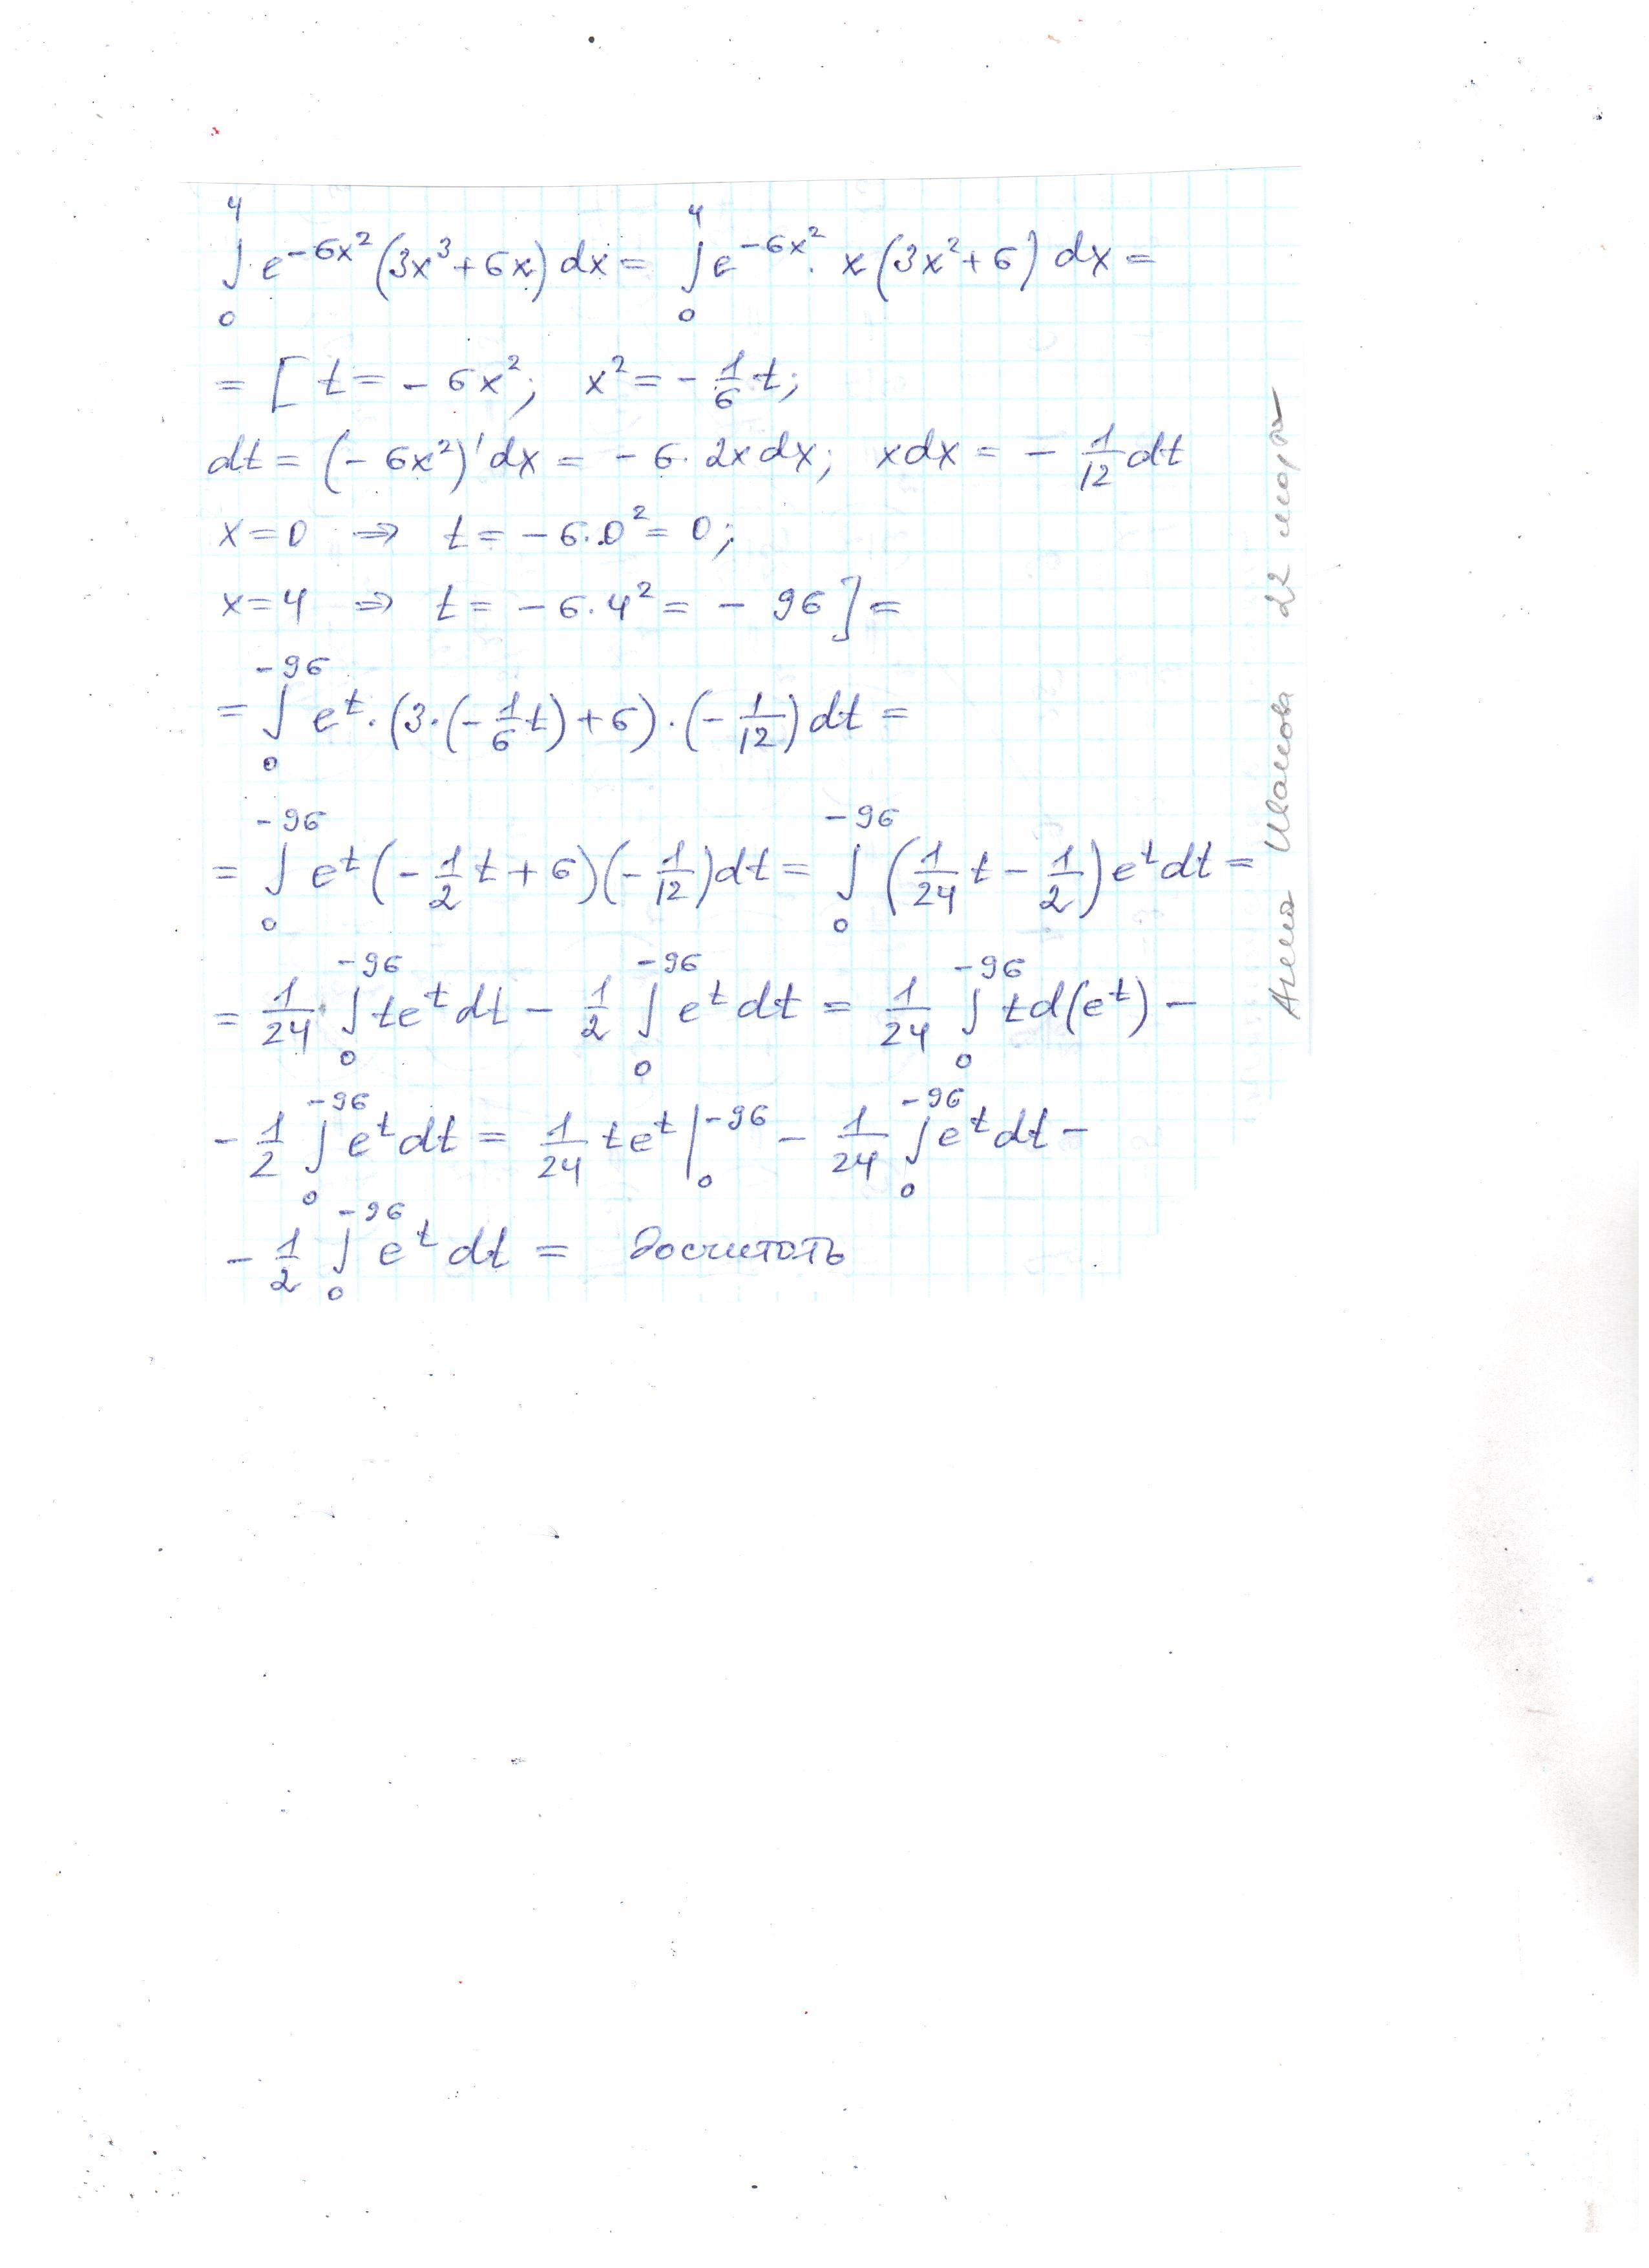 ∫₀⁴ e^{-6x²}(3x³+6x)dx = ∫₀⁴ e^{-6x²}·x(3x²+6)dx =
= [t = -6x²; x² = -1/6 t;
dt = (-6x²)'dx = -6·2xdx; xdx = -1/12 dt
x=0 ⇒ t = -6·0² = 0;
x=4 ⇒ t = -6·4² = -96] =
= ∫₀^{-96} e^t·(3·(-1/6 t)+6)·(-1/12)dt =
= ∫₀^{-96} e^t(-1/2 t+6)(-1/12)dt = ∫₀^{-96} (1/24 t - 1/2)e^t dt =
= 1/24·∫₀^{-96} te^t dt - 1/2 ∫₀^{-96} e^t dt = 1/24 ∫₀^{-96} td(e^t) -
- 1/2 ∫₀^{-96} e^t dt = 1/24 te^t |₀^{-96} - 1/24 ∫₀^{-96} e^t dt -
- 1/2 ∫₀^{-96} e^t dt = досчитать
Анна Иванова 22 марта